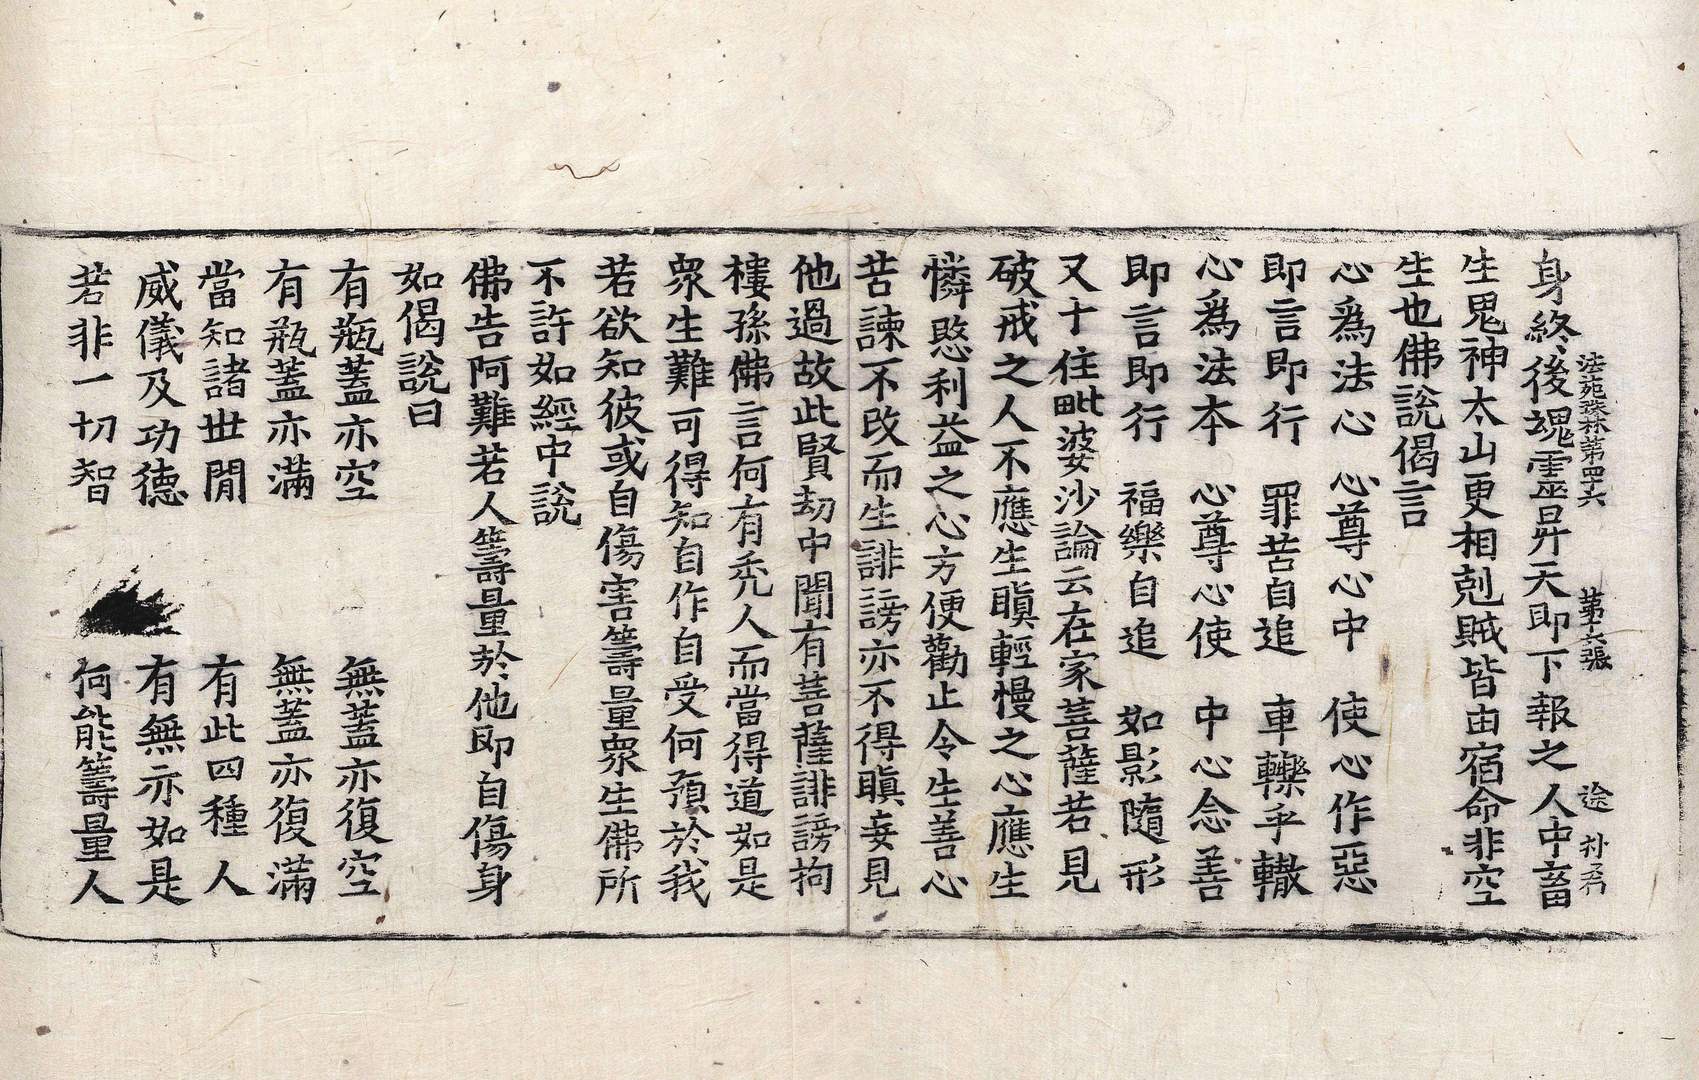 法苑珠林第四十六　第六張　途　朴君
身終後魂霊昇天即下報之人中畜
生鬼神太山更相剋賊皆由宿命非空
生也佛說偈言
心為法心　心尊心中　使心作惡
即言即行　罪苦自追　車轢乎轍
心為法本　心尊心使　中心念善
即言即行　福樂自追　如影隨形
又十住毗婆沙論云在家菩薩若見
破戒之人不應生瞋輕慢之心應生
憐愍利益之心方便勸止令生善心
苦諫不改而生誹謗亦不得瞋妄見
他過故此賢劫中聞有菩薩誹謗拘
樓孫佛言何有禿人而當得道如是
眾生難可得知自作自受何預於我
若欲知彼或自傷害籌量眾生佛所
不許如經中說
佛告阿難若人籌量於他即自傷身
如偈說曰
有瓶蓋亦空　無蓋亦復空
有瓶蓋亦滿　無蓋亦復滿
當知諸世間　有此四種人
威儀及功德　有無亦如是
若非一切智　何能籌量人